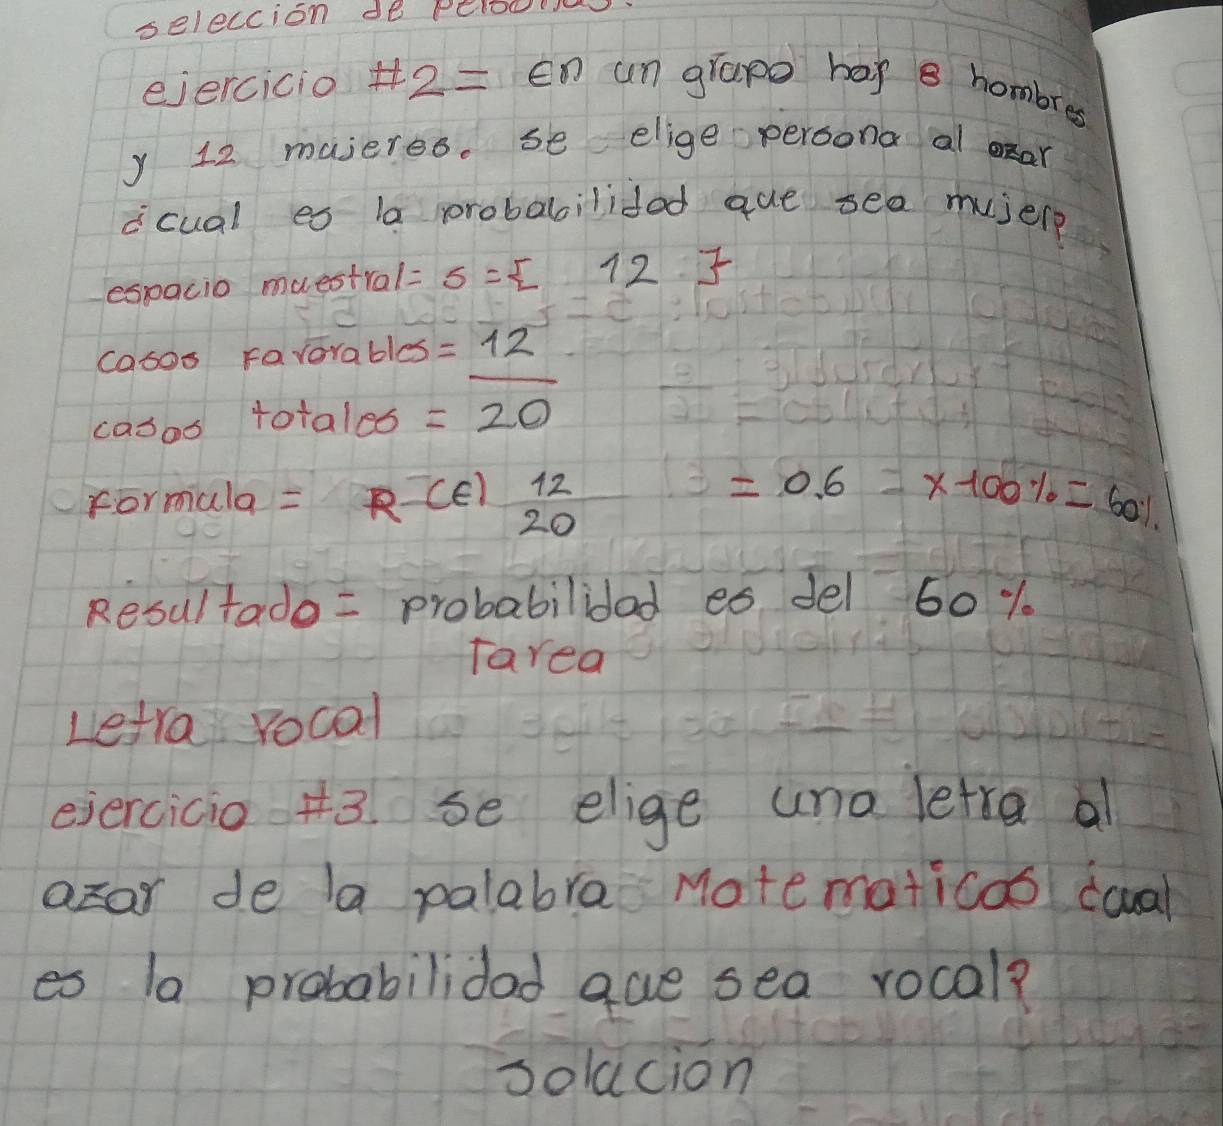 selección de personas.
ejercicio #2= En un grupo hay 8 hombres
y 12 mujeres. se elige persona al azar
¿cual es la probabilidad que sea mujer?
espacio muestral= s={ 12 }
casos Favorables= 12
casos totales = 20
Formula= P(E) 12/20 = 0.6 = x100%=60%.
Resultado= probabilidad es del 60%
Tarea
Letra vocal
ejercicio #3. se elige una letra al
azar de la palabra Matematicas ¿cual
es la probabilidad que sea vocal?
Solucion